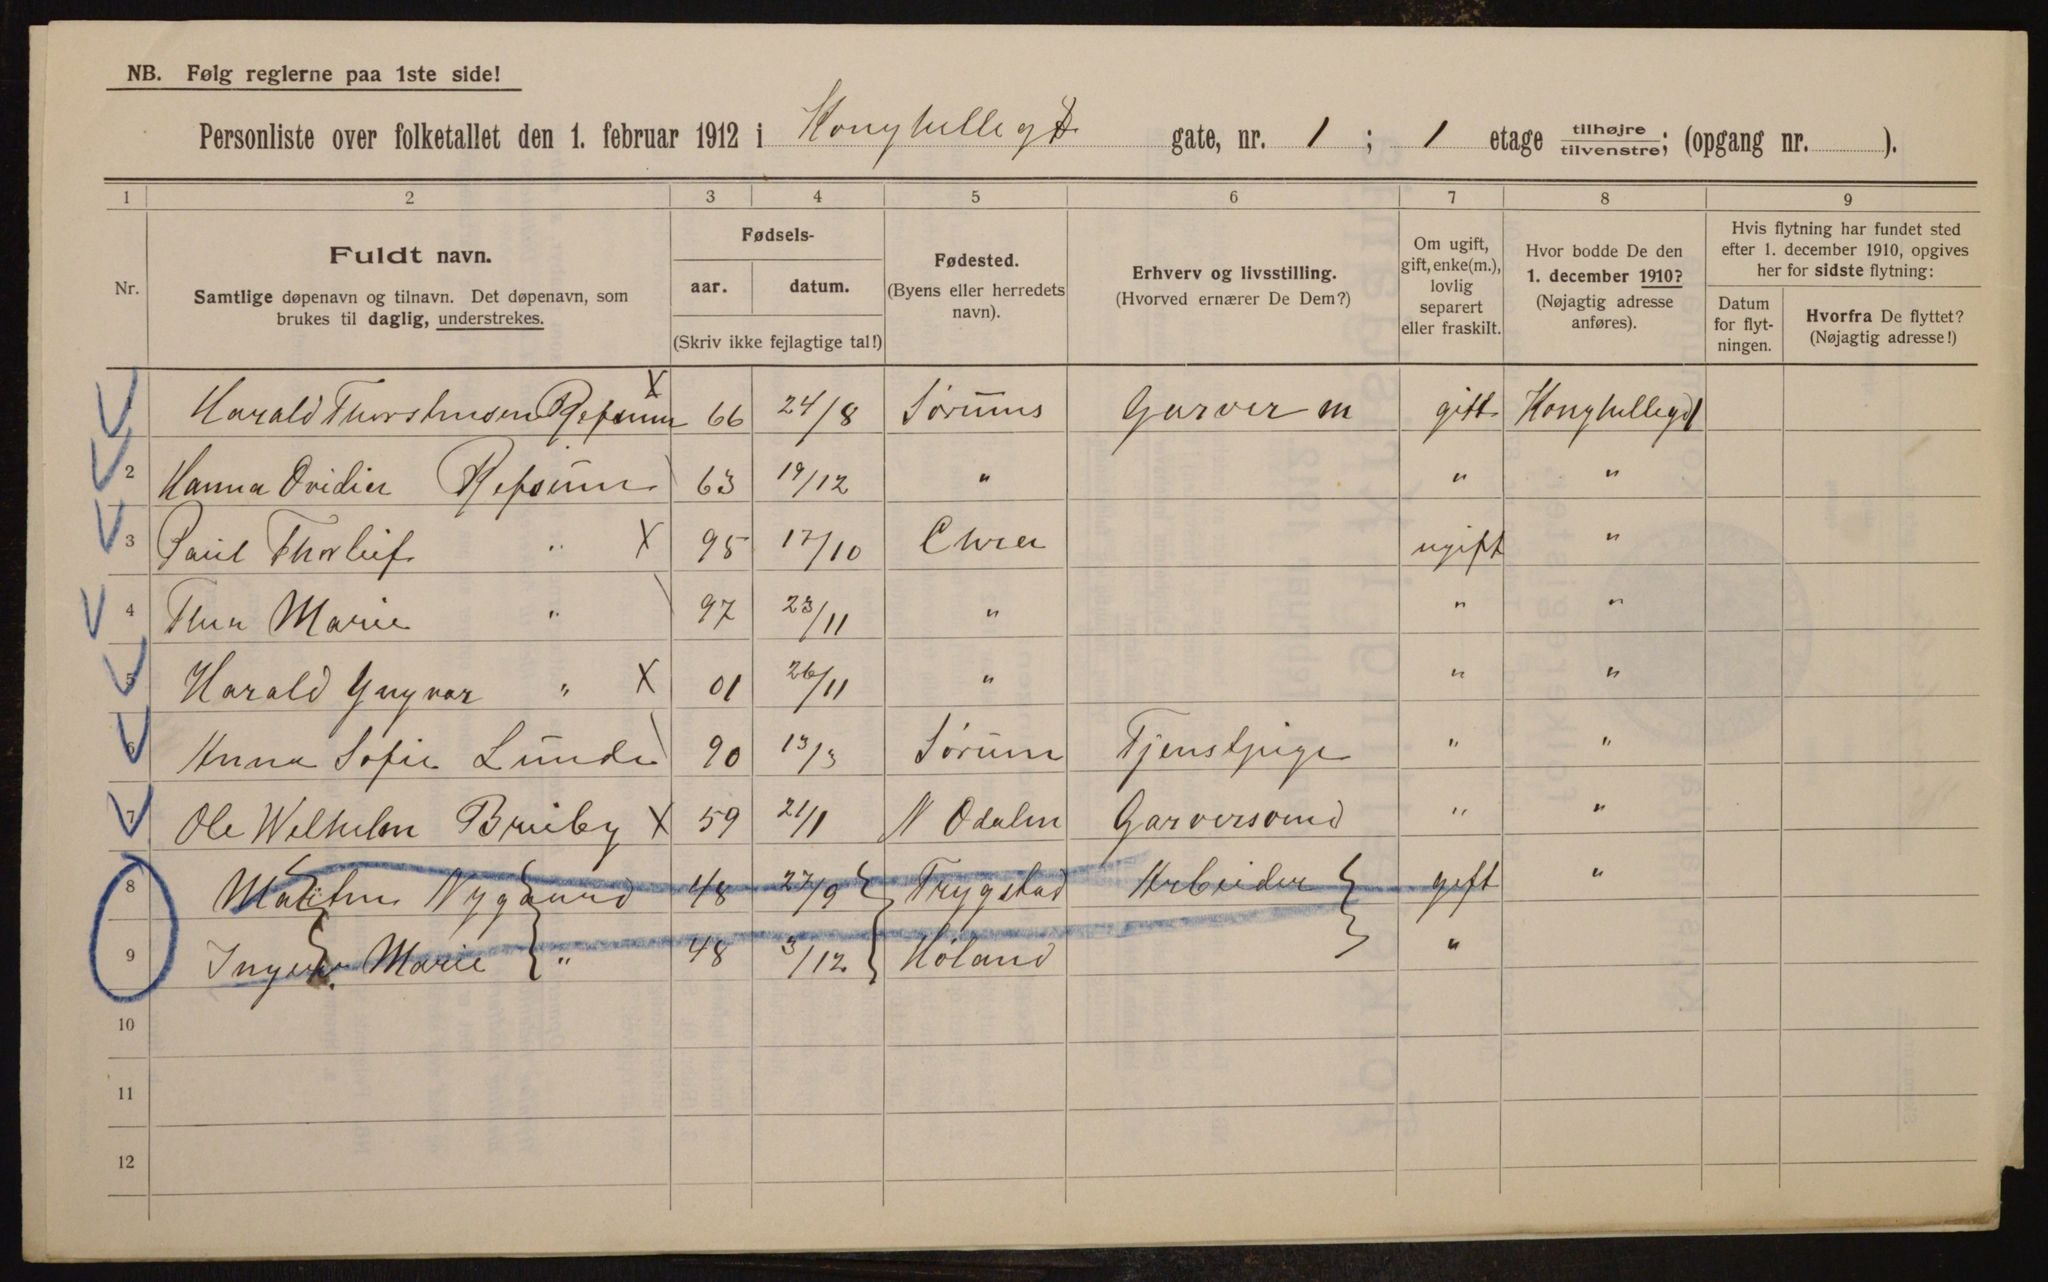 NB. Følg reglerne paa 1ste side!
Personliste over folketallet den 1. februar 1912 i Konghellegd gate, nr. 1 ; 1 etage tilhøjre tilvenstre; (opgang nr. ).
1 2 3 4 5 6 7 8 9
Nr.
Fuldt navn.
Samtlige døpenavn og tilnavn. Det døpenavn, som
brukes til daglig, understrekes.
Fødsels-
aar. datum.
(Skriv ikke fejlagtige tal!)
Fødested.
(Byens eller herredets
navn).
Erhverv og livsstilling.
(Hvorved ernærer De Dem?)
Om ugift,
gift, enke(m.),
lovlig
separert
eller fraskilt.
Hvor bodde De den
1. december 1910?
(Nøjagtig adresse
anføres).
Hvis flytning har fundet sted
efter 1. december 1910, opgives
her for sidste flytning:
Datum
for flyt-
ningen.
Hvorfra De flyttet?
(Nøjagtig adresse!)
1 Harald Thorstensen Refsum X 66 24/8 Sørums Garver m gift Konghellegd
2 Hanna Ovidier Refsum 63 19/12 " " "
3 Paul Thorleif " X 95 17/10 Chria ugift "
4 Thea Marie " 97 23/11 " " "
5 Harald Yngvar " X 01 26/11 " " "
6 Anna Sofie Lunde 90 13/3 Sørum Tjenstpige " "
7 Ole Welhelm Bruby X 59 21/1 N Odalen Garversvend " "
8 Nygaard 48 27/9 Trygstad Arbeider gift "
9 Marie " 48 3/12 Høland "
10
11
12